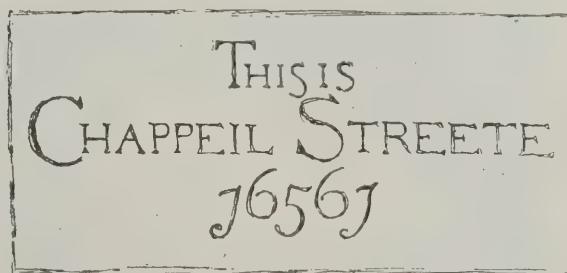 THIS IS
CHAPPEIL STREETE
16561